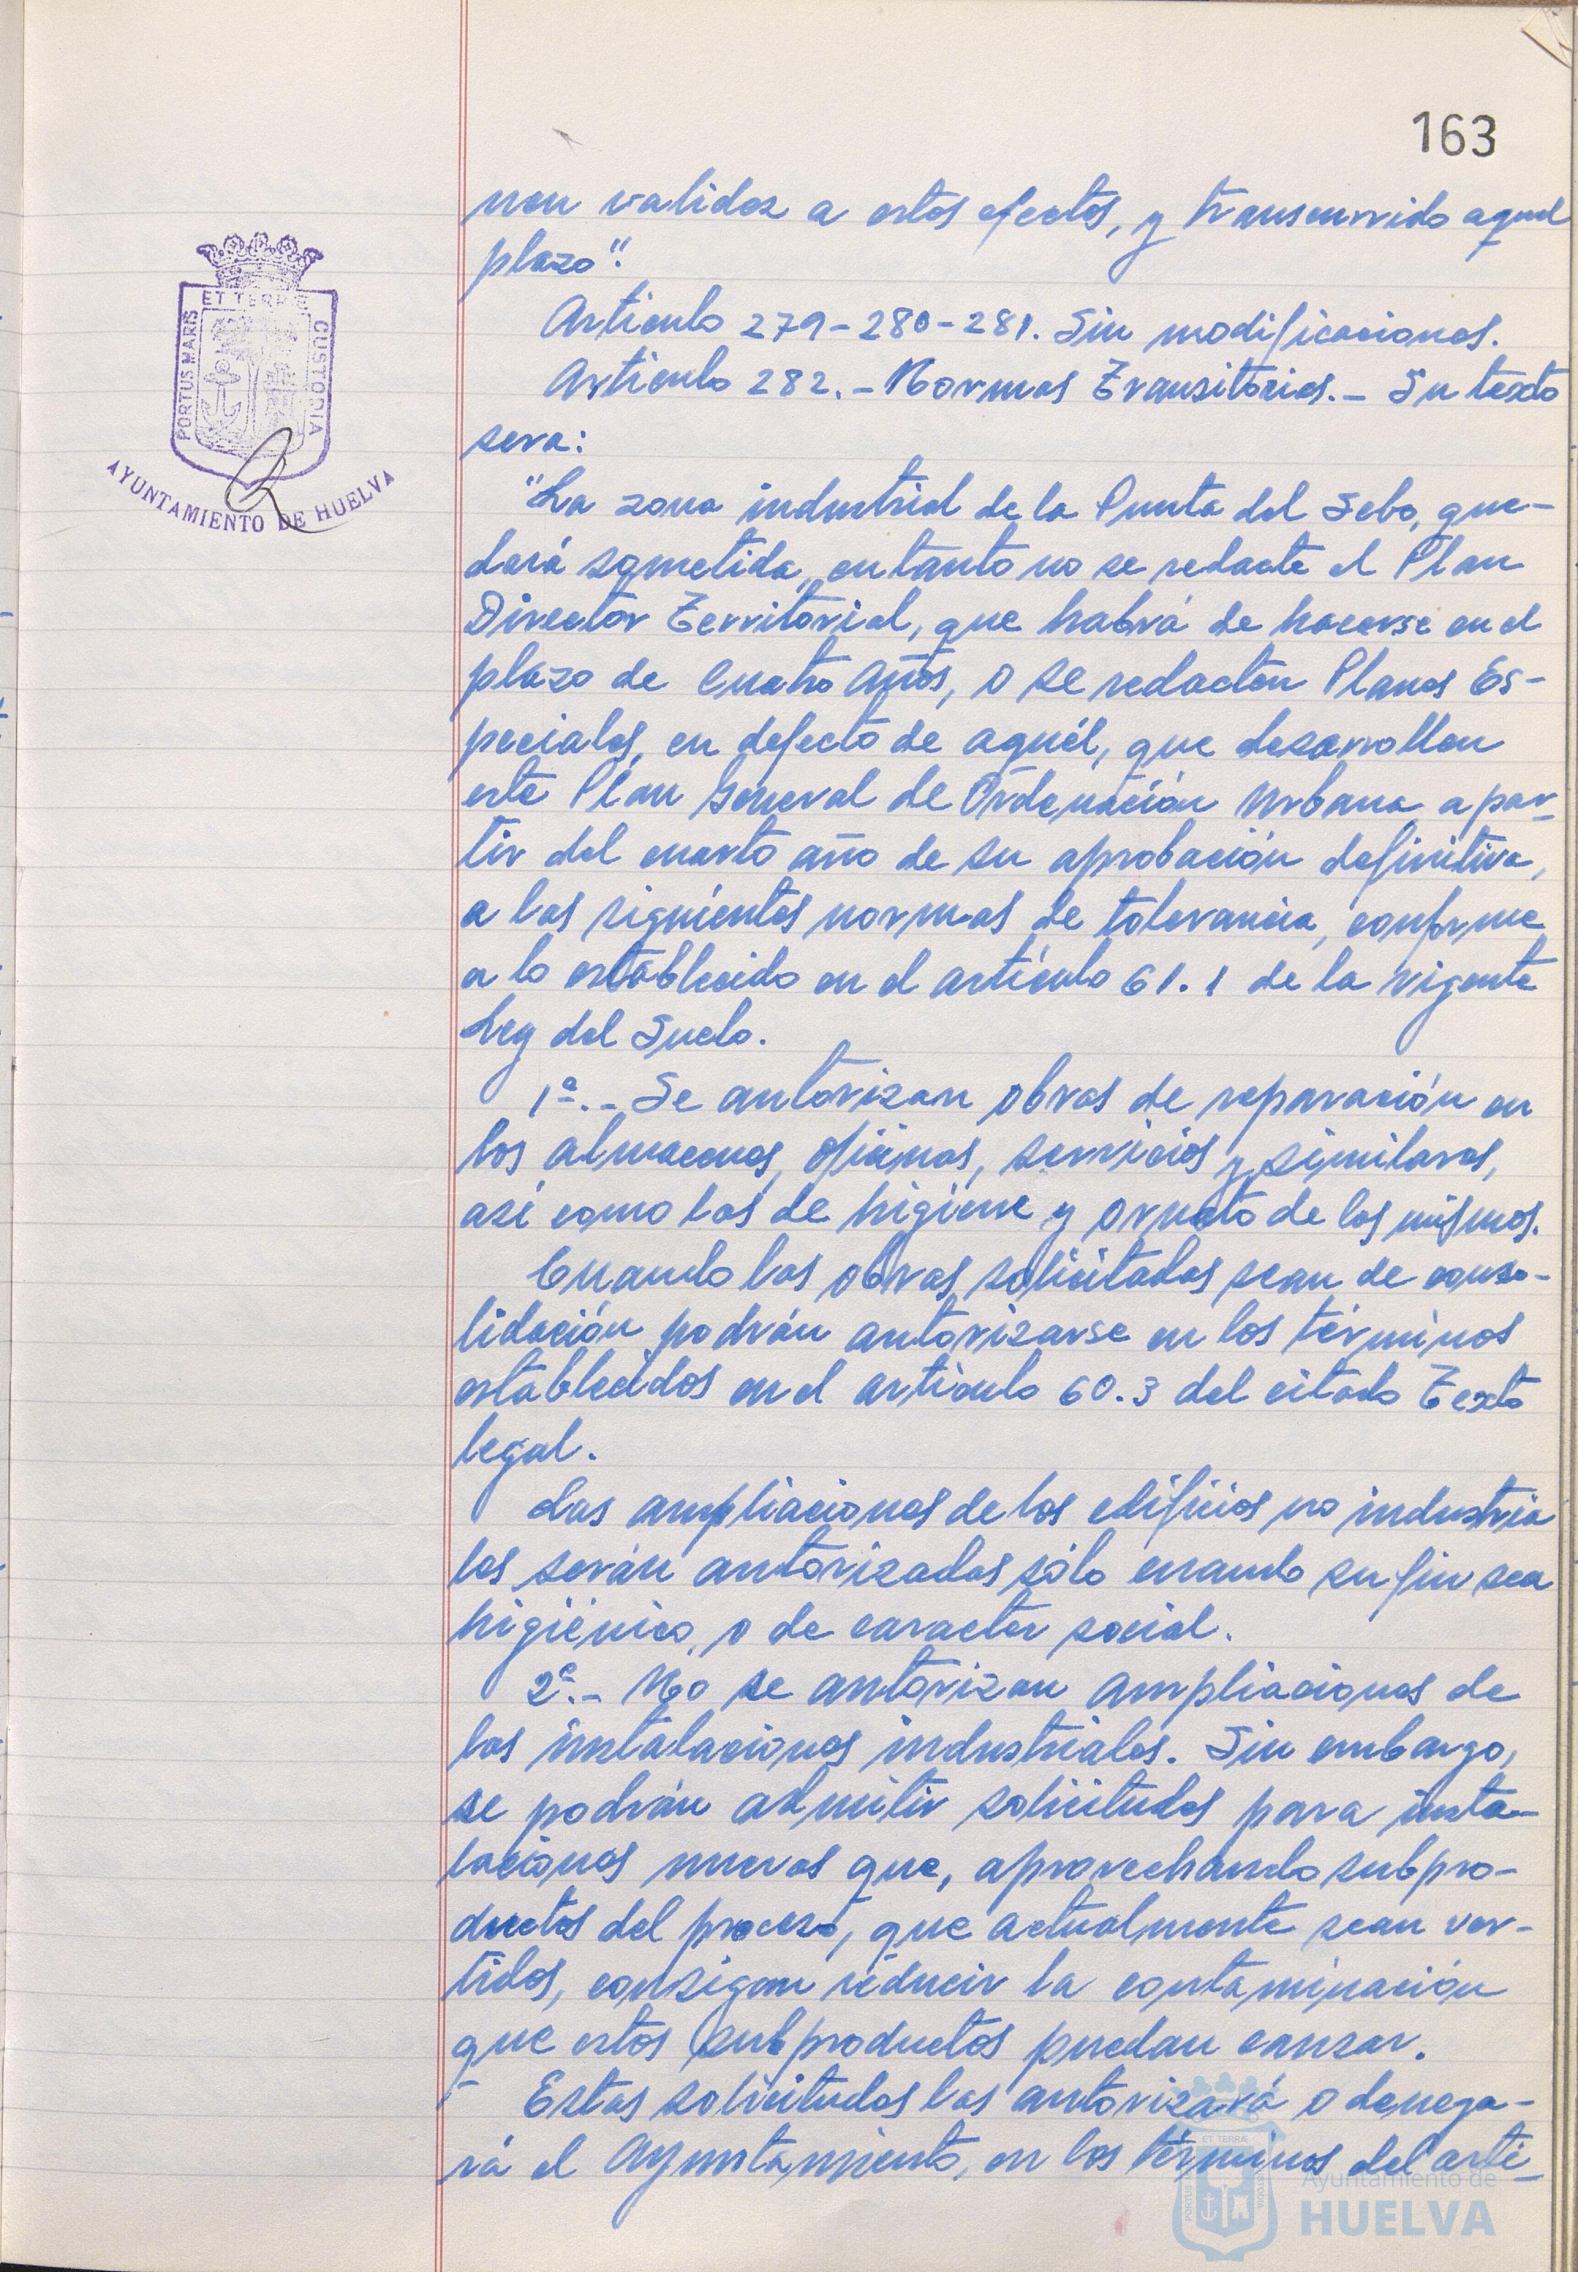 163
ET TERRE
PORTUS MARIS
CUSTODIA
AYUNTAMIENTO DE HUELVA
nen validez a estos efectos, y transcurrido aquel
plazo".
Artículo 279-280-281. Sin modificaciones.
Artículo 282.- Normas Transitorias.- Su texto
sera:
"La zona industrial de la Punta del Sebo, que-
dará sometida, en tanto no se redacte el Plan
Director Territorial, que habrá de hacerse en el
plazo de cuatro años, o se redacten Planes Es-
peciales, en defecto de aquél, que desarrollen
este Plan General de Ordenación Urbana a par-
tir del cuarto año de su aprobación definitiva,
a las siguientes normas de tolerancia, conforme
a lo establecido en el artículo 61.1 de la vigente
Ley del Suelo.
1ª.- Se autorizan obras de reparación en
los almacenes, oficinas, servicios y similares,
así como las de higiene y ornato de los mismos.
Cuando las obras solicitadas sean de conso-
lidación podrán autorizarse en los términos
establecidos en el artículo 60.3 del citado Texto
legal.
Las ampliaciones de los edificios no industria
les serán autorizadas sólo cuando su fin sea
higiénico, o de caracter social.
2ª.- No se autorizan ampliaciones de
las instalaciones industriales. Sin embargo,
se podrán admitir solicitudes para insta-
laciones nuevas que, aprovechando subpro-
ductos del proceso, que actualmente sean ver-
tidos, consigan reducir la contaminación
que estos subproductos puedan causar.
Estas solicitudes las autorizará o denega-
rá el Ayuntamiento, en los términos del artí-
ET TERRA
PORTUS
CUSTODIA
Ayuntamiento de
HUELVA